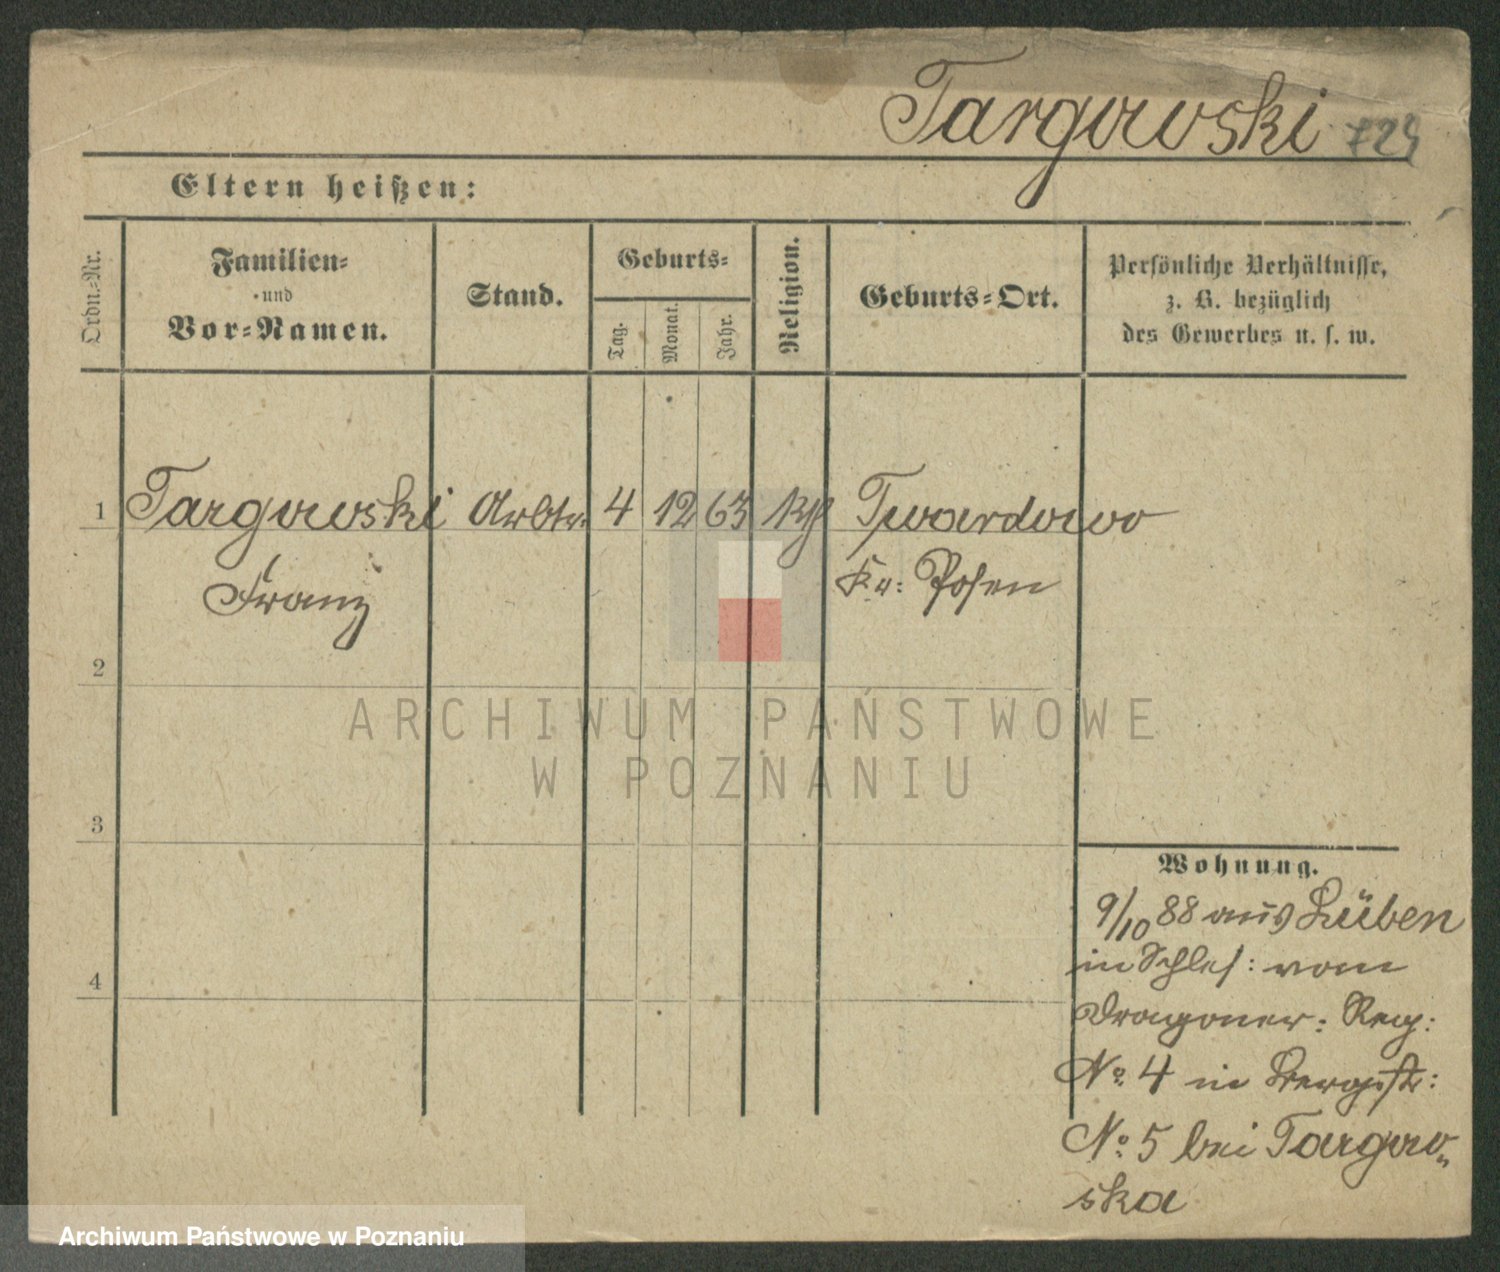 Targowski 724
Eltern heißen:
Ordn.-Nr.
Familien-
und
Vor-Namen.
Stand.
Geburts-
Tag.
Monat.
Jahr.
Religion.
Geburts-Ort.
Persönliche Verhältnisse,
z. B. bezüglich
des Gewerbes u. s. w.
1 Targowski Arbtr. 4 12 63 Twardowo
Franz Kr: Posen
2
3
4
Wohnung.
9/10 88 aus Lüben
in Schles: vom
Dragoner: Reg:
No. 4 in Bergstr:
No. 5 bei Targow„
ska
ARCHIWUM PAŃSTWOWE
W POZNANIU
Archiwum Państwowe w Poznaniu